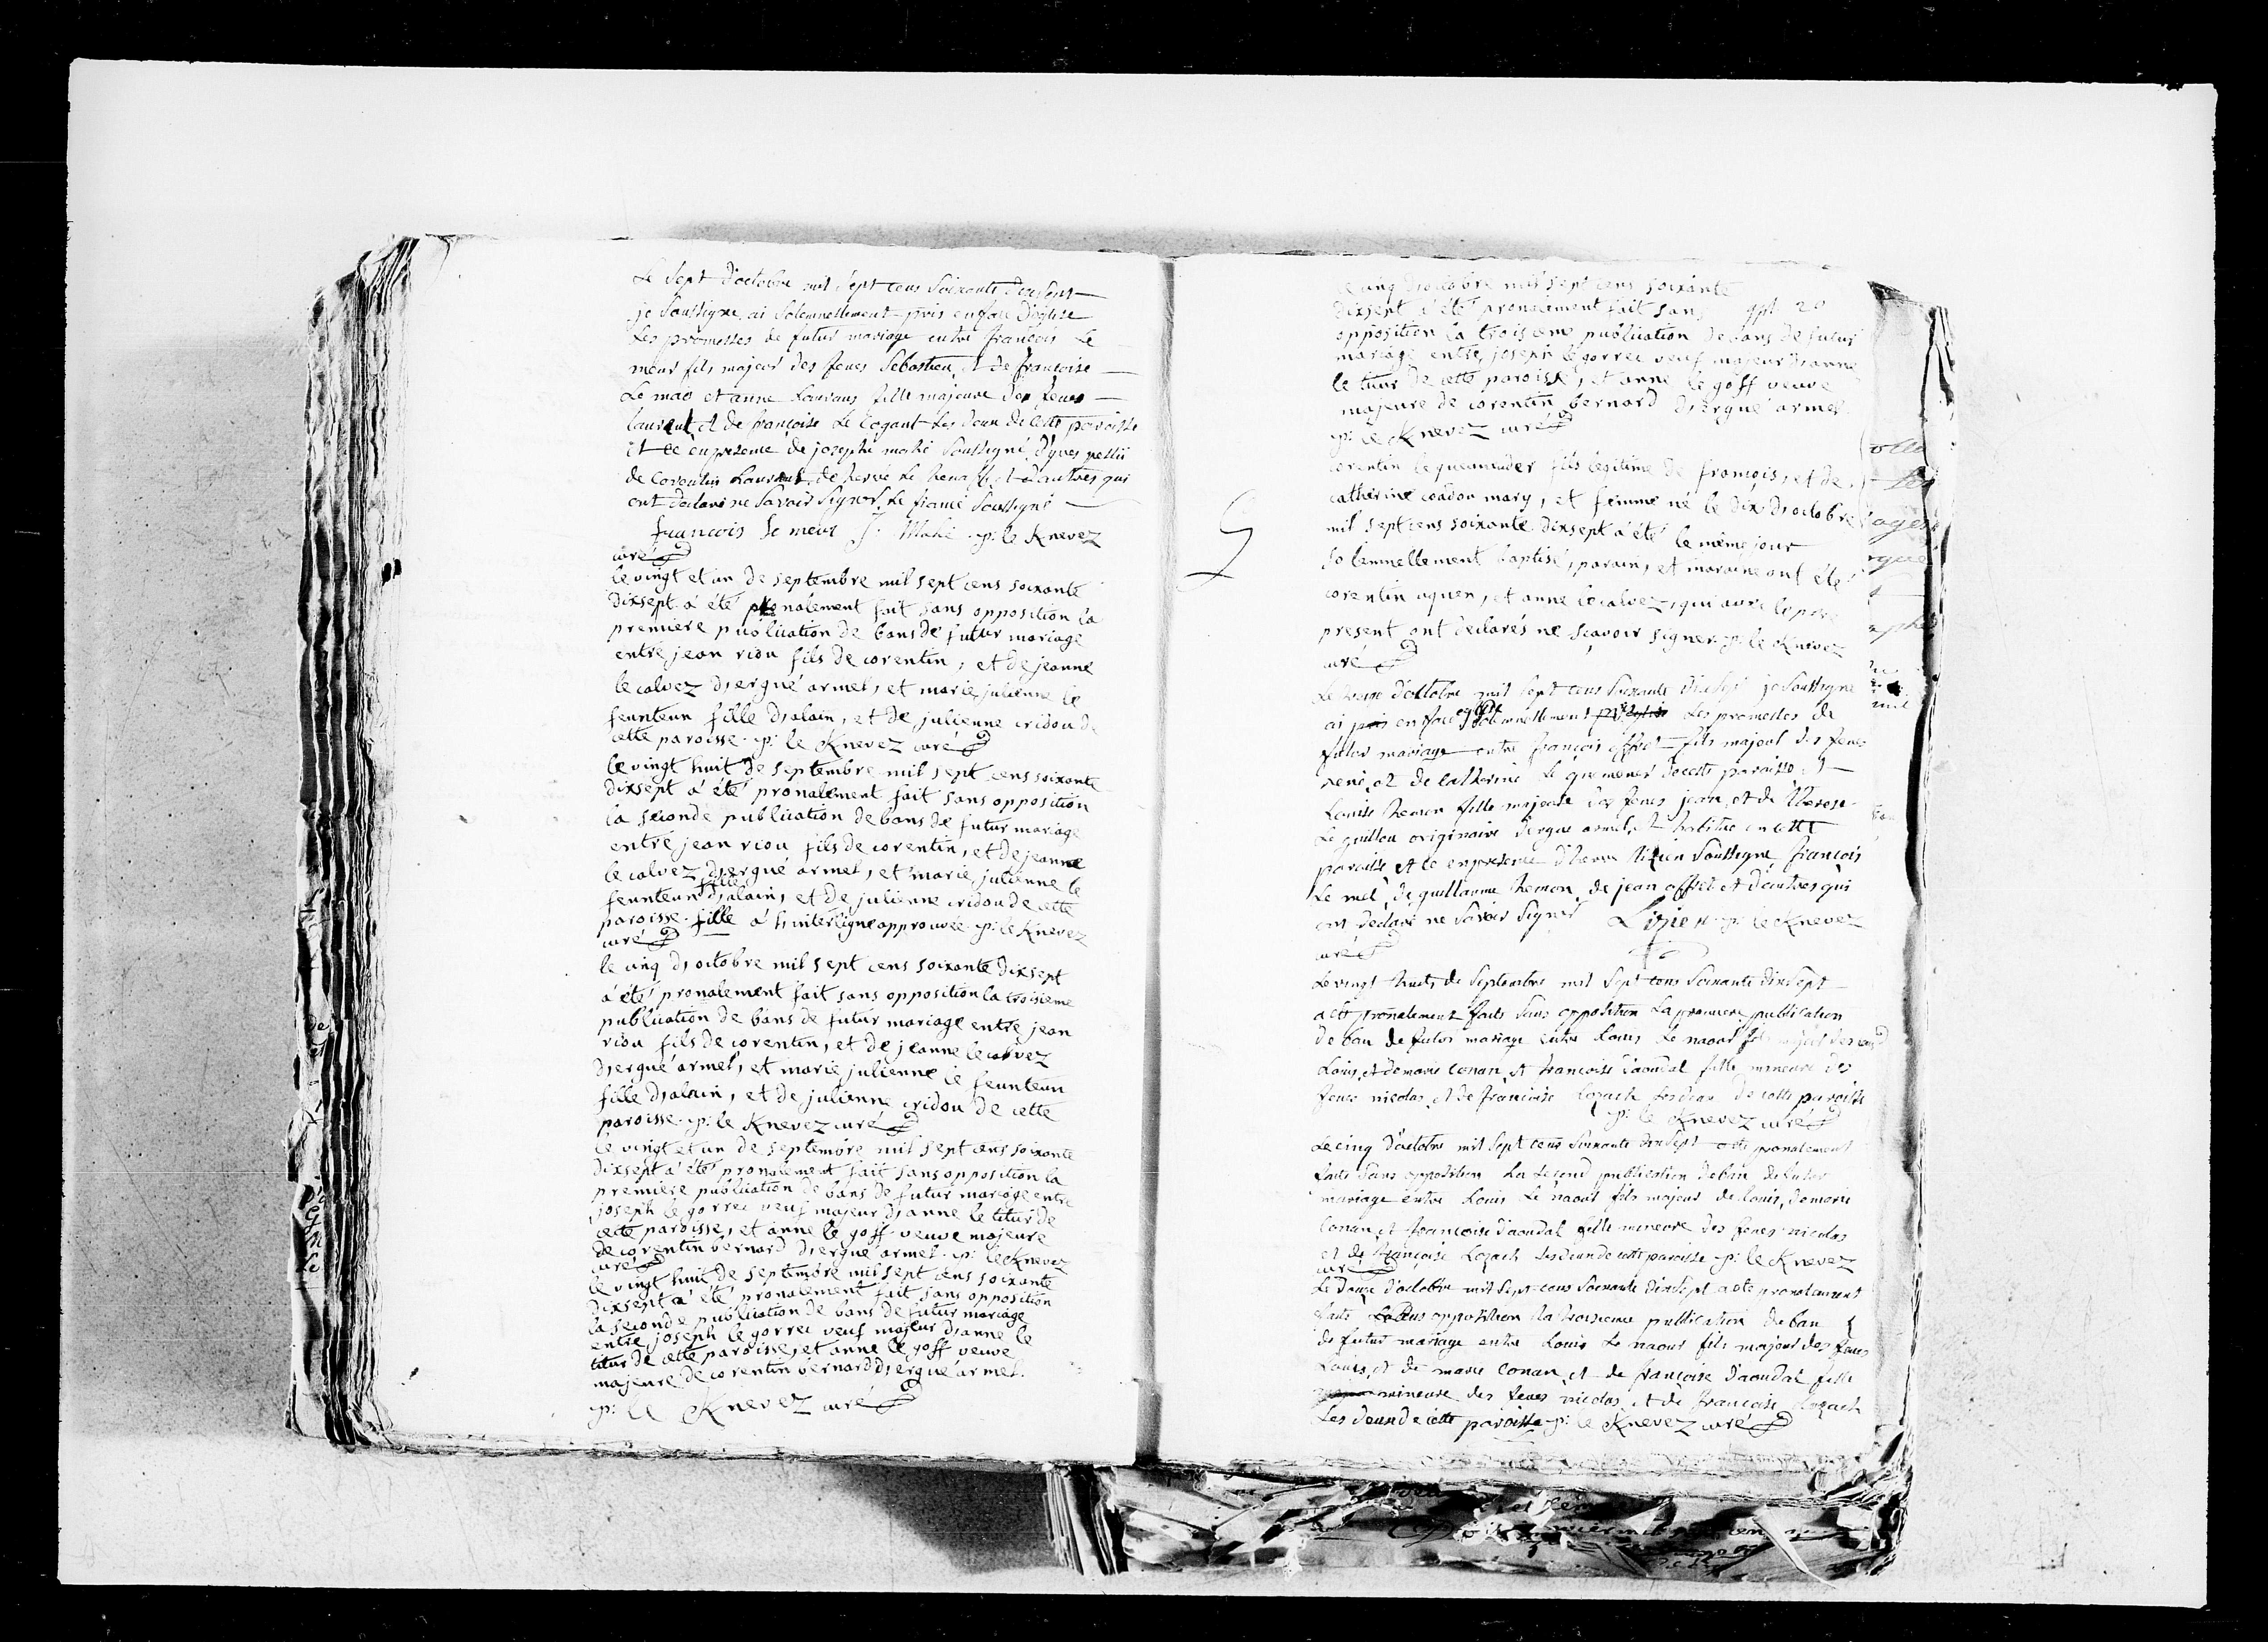 Le sept d'octobre mil sept cens soixante dixsept
je soussigne ai solemnellement pris en face d'eglise
Les promesses de futur mariage entre françois Le
meur fils majeur des feues Sebastien et de françoise
Le mao et anne Laurans fille majeure des feues
laurent et de françoise Le Cogant Les deux de cette paroisse
et ce en presence de joseph mahé soussigné, d'yves
de Corentin Laurent, de hervé Le henaff et d'autres qui
ont declaré ne savoir signer Le fiancé soussigné
francois le meur J: Mahé p: le Knevez
curé
le vingt et un de septembre mil sept cens soixante
dixsept a été pronalement fait sans opposition la
premiere publication de bans de futur mariage
entre jean riou fils de corentin, et de jeanne
le calvez d'ergué armel, et marie julienne le
feunteun fille d'alain, et de julienne cridou de
cette paroisse. p: le Knevez curé
le vingt huit de septembre mil sept cens soixante
dixsept a été pronalement fait sans opposition
la seconde publication de bans de futur mariage
entre jean riou fils de corentin, et de jeanne
le calvez d'ergué armel, et marie julienne le
feunteun fille d'alain, et de julienne cridou de cette
paroisse. fille a l'interligne approuvée p: le Knevez
curé
le cinq d'octobre mil sept cens soixante dixsept
a été pronalement fait sans opposition la troisieme
publication de bans de futur mariage entre jean
riou fils de corentin, et de jeanne le calvez
d'ergué armel, et marie julienne le feunteun
fille d'alain, et de julienne cridou de cette
paroisse. p: le Knevez curé
le vingt et un de septembre mil sept cens soixante
dixsept a été pronalement fait sans opposition la
premiere publication de bans de futur mariage entre
joseph le gorrec veuf majeur d'anne le titur de
cette paroisse, et anne le goff veuve majeure
de corentin bernard d'ergué armel. p: le Knevez
curé
le vingt huit de septembre mil sept cens soixante
dixsept a été pronalement fait sans opposition
la seconde publication de bans de futur mariage
entre joseph le gorrec veuf majeur d'anne le
titur de cette paroisse, et anne le goff veuve
majeure de corentin bernard d'ergué armel.
p: le Knevez curé
le cinq d'octobre mil sept cens soixante
dixsept a été pronalement fait sans
opposition la troisieme publication de bans de futur
mariage entre joseph le gorrec veuf majeur d'anne
le titur de cette paroisse, et anne le goff veuve
majeure de corentin bernard d'ergué armel.
p: le Knevez curé
corentin le quemender fils legitime de françois, et de
catherine coadou mary, et femme né le dix d'octobre
mil sept cens soixante dixsept a été le même jour
solemnellement baptisé, parain, et maraine ont été
corentin aquen, et anne le calvez, qui avec le pere
present ont declarés ne scavoir signer p: le Knevez
curé
Le treize d'octobre mil sept cens soixante dixsept je soussigne
ai pris en face eglise solemnellement Les promesses de
futur mariage entre françois offret fils majeur des feues
rené, et de catherine Le quemener de cette paroisse et
Louise hemon fille majeure des feues jean, et de Therese
Le guillou originaire d'ergue armel, et habitue en cette
paroisse et ce en presence soussigné, françois
Le mel, de guillaume hemon, de jean offret et d'autres qui
ont declaré ne savoir signer Lizien p: le Knevez
curé
Le vingt huit de septembre mil sept cens soixante dixsept
a ete pronalement faite sans opposition La premiere publication
de ban de futur mariage entre Louis Le naour fils majeur des feues
Louis, et de marie Conan, et françoise daoudal fille mineure des
feues nicolas, et de françoise Lozach Les deux de cette paroisse
p: le Knevez curé
Le cinq d'octobre mil sept cens soixante dixsept a ete pronalement
faite sans opposition La second publication de ban de futur
mariage entre Louis Le naour fils majeur de louis, de marie
Conan, et françoise daoudal fille mineure des feues nicolas
et de françoise Lozach Les deux de cette paroisse p: le Knevez
curé
Le douze d'octobre mil sept cens soixante dixsept a ete pronalement
faite sans opposition La troisieme publication de ban
de futur mariage entre Louis Le naour fils majeur des feues
Louis, et de marie Conan, et de françoise daoudal fille
mineure des feues nicolas, et de françoise Lozach
Les deux de cette paroisse p: le Knevez curé